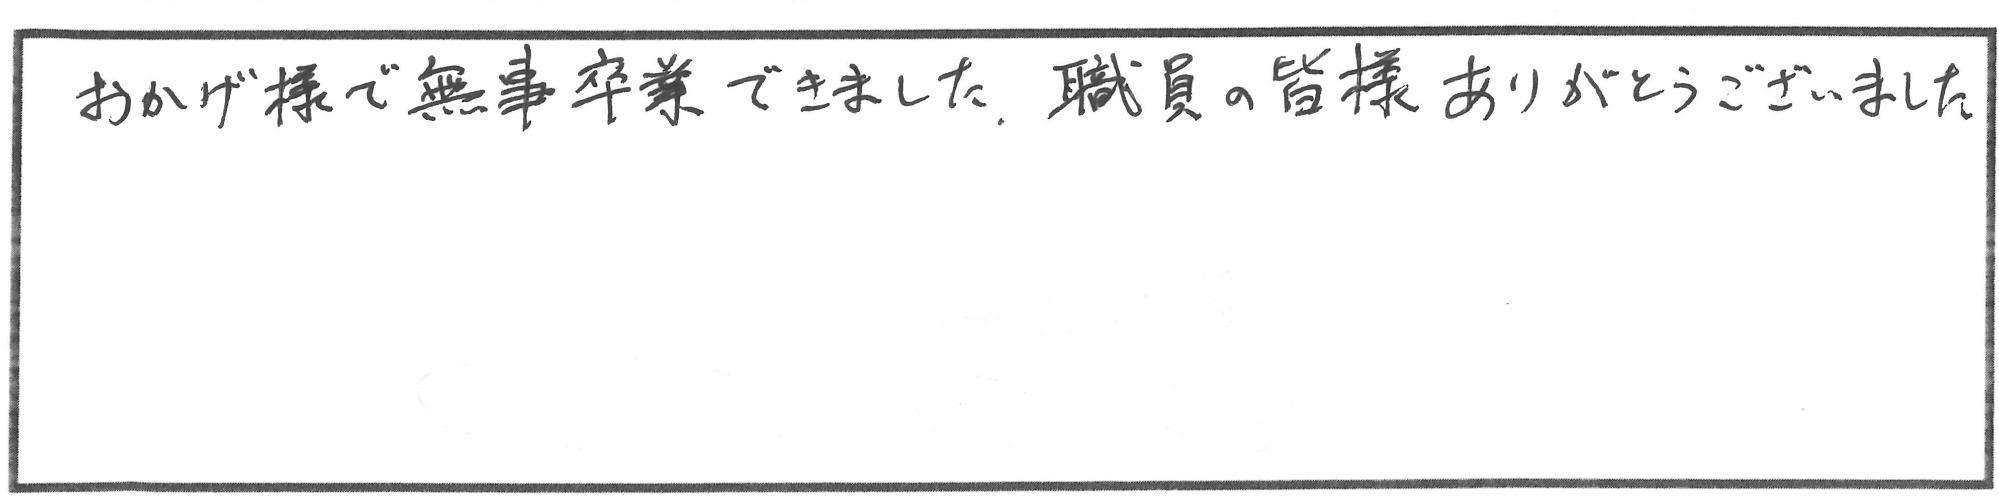 おかげ様で無事卒業できました. 職員の皆様ありがとうございました